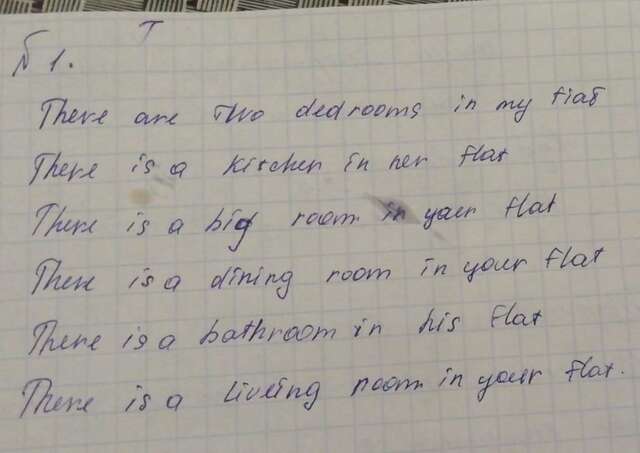 T
№ 1.
There are two dedrooms in my flat
There is a kitcher in her flat
There is a big room in yaer flat
There is a dining room in your flat
There is a bathroom in his flat
There is a liveing room in your flat.